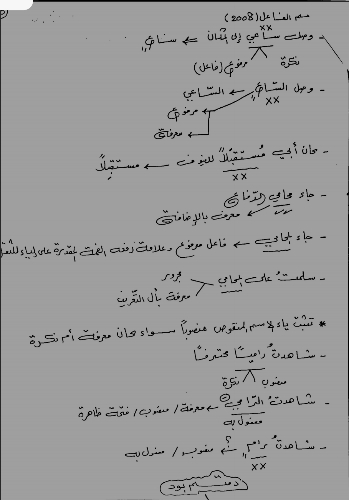 اسم الفاعل (2008)
- وصل ساعي إلى المكان ← ساعٍ
xx
نكرة مرفوع (فاعل)
- وصل السّاعِ ← السّاعي
xx
مرفوع
معرفة
- كان أبي مُستقبَلاً للضيوف ← مستقبِلاً
xx
- جاء محامي الدّفاع
معرف بالإضافة
- جاء المحامي ← فاعل مرفوع وعلامة رفعه الضمة المقدرة على الياء للثقل
- سلمتُ على المحامي
مجرور
معرفة بأل التعريف
* تثبت ياء الاسم المنقوص منصوباً سواء كان معرفة أم نكرة
- شاهدتُ رامياً محترفاً
منصوب نكرة
- شاهدتُ الرّاميَ ← معرفة / منصوب / فتحة ظاهرة
مفعول به
- شاهدتُ رامٍ ؟ منصوب / مفعول به
xx
دمتم بود